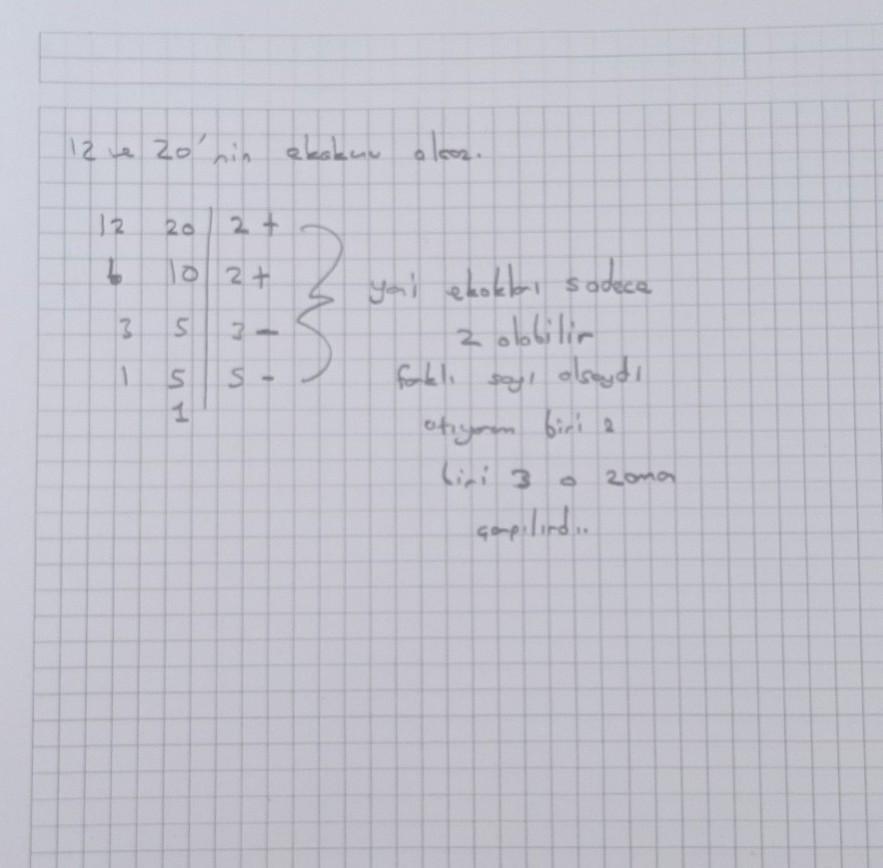 12 ve 20'nin ekokunu alcaz.
12 20 | 2 +
6 10 | 2 +
3 5 | 3 -
1 5 | 5 -
1
yani ekokları sadece
2 olabilir
farklı sayı olsaydı
atıyorum biri 2
biri 3 o zaman
çarpılırdı..